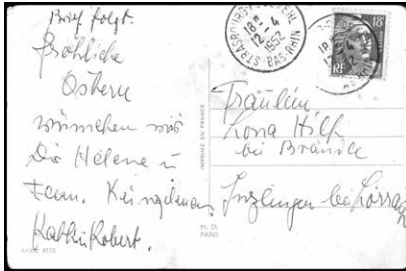 Brief folgt.
Fröhliche
Ostern
wünschen wir
Dir Helene u
Fam.
Kathi Robert.
STRASBOURG
18H
12-4
1952
BAS-RHIN
18F
RF
IMPRIMÉ EN FRANCE
M. D.
PARIS
Fräulein
Hilf
bei Brändle
Inzlingen bei Lörrach